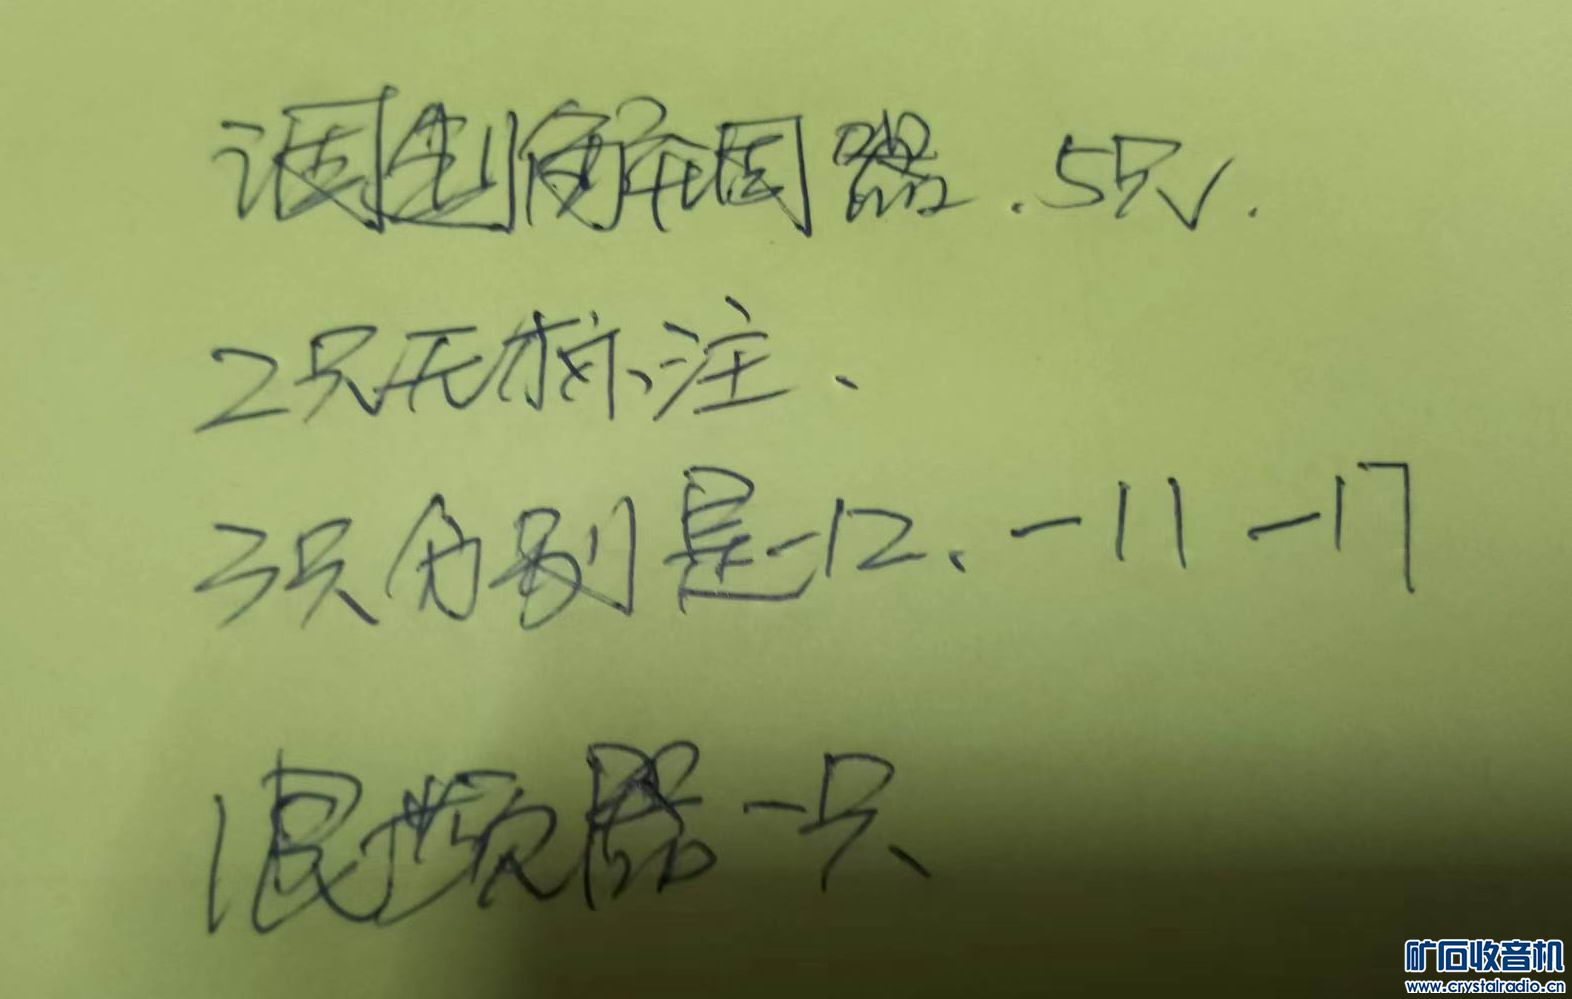 调制解调器.5只.
2只无标注、
3只分别是-12、-11 -17
混频器一只
矿石收音机
www.crystalradio.cn